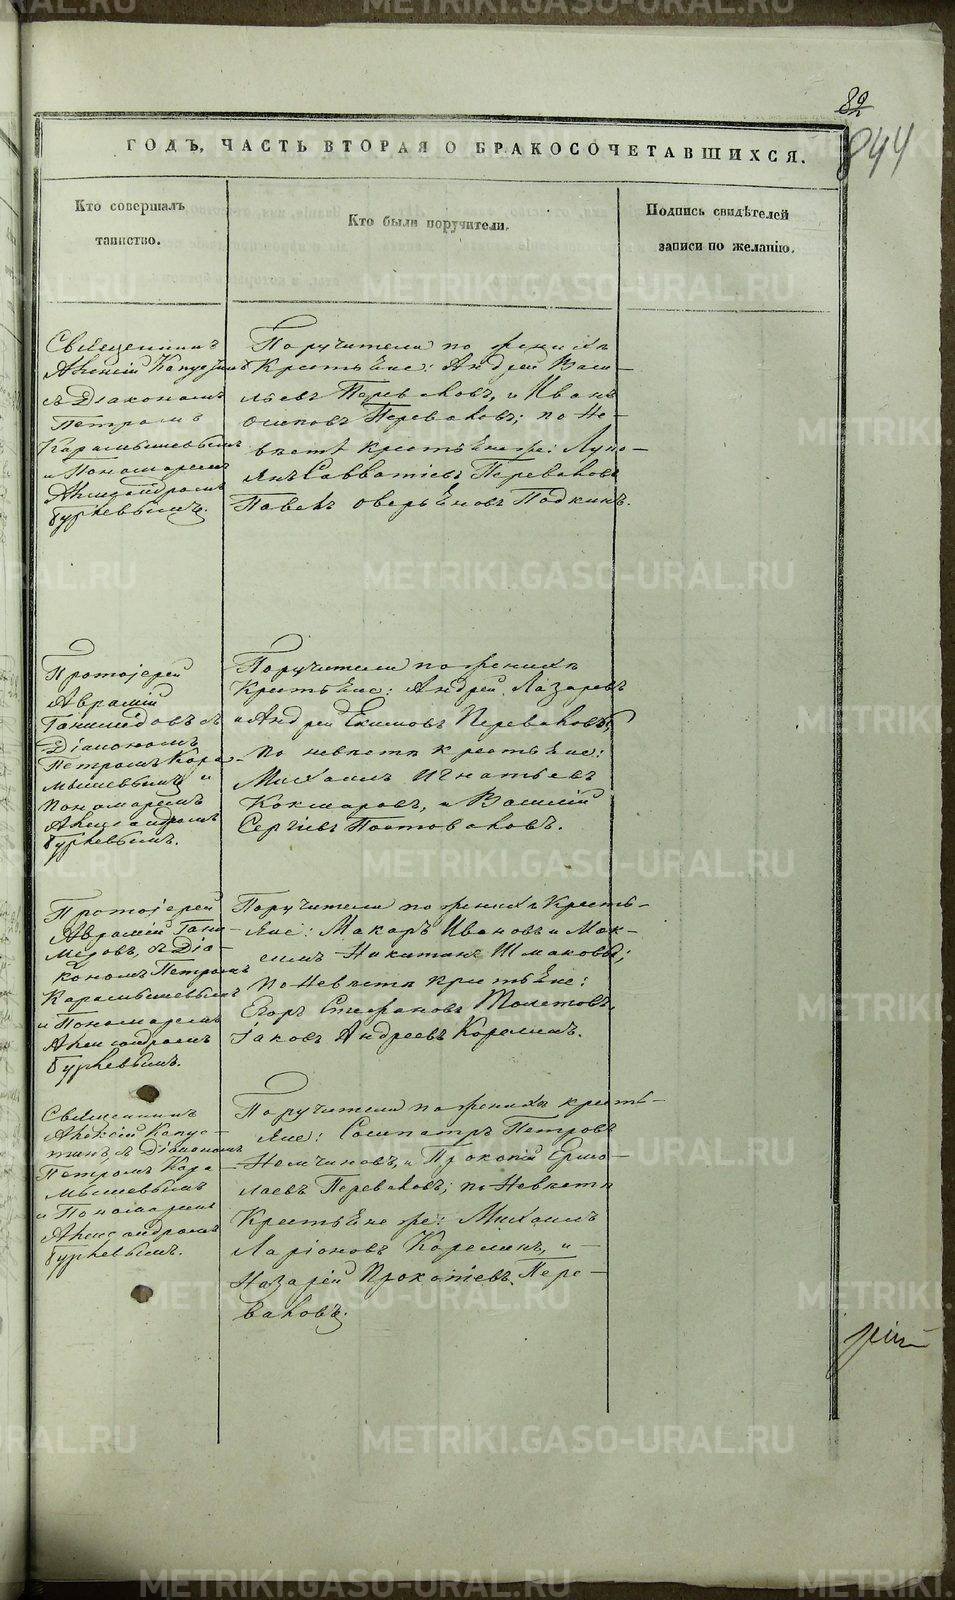 82
944
ГОДЪ, ЧАСТЬ ВТОРАЯ О БРАКОСОЧЕТАВШИХСЯ.
Кто совершалъ
таинство.
Кто были поручители.
Подпись свидѣтелей
записи по желанію.
Священникъ
Алексій Капустинъ
съ Діакономъ
Петромъ
Карамышевымъ
и Пономаремъ
Александромъ
Гурьевымъ.
Поручители по женихѣ
Крестьяне: Андрей Васи-
льевъ Переваловъ, и Иванъ
Осиповъ Переваловъ; по не-
вѣстѣ крестьяне же: Лупо-
янъ Савватіевъ Переваловъ
Павелъ Оверьяновъ Подкинъ.
Протоіерей
Аврамій
Ганимедовъ съ
Діакономъ
Петромъ Кара-
мышевымъ и
Пономаремъ
Александромъ
Гурьевымъ.
Поручители по женихѣ
Крестьяне: Андрей Лазаревъ
и Андрей Екимовъ Переваловы;
по невѣстѣ крестьяне:
Михаилъ Игнатьевъ
Кокшаровъ, и Василій
Сергіевъ Постоваловъ.
Протоіерей
Аврамій Гани-
медовъ, съ Діа-
кономъ Петромъ
Карамышевымъ
и Пономаремъ
Александромъ
Гурьевымъ.
Поручители по женихѣ Кресть-
яне: Макаръ Ивановъ и Мак-
симъ Никитинъ Шмаковы;
по невѣстѣ крестьяне:
Егоръ Стефановъ
Іаковъ Андреевъ Корелинъ.
Священникъ
Алексій Капус-
тинъ, съ Діакономъ
Петромъ Кара-
мышевымъ
и Пономаремъ
Александромъ
Гурьевымъ.
Поручители по женихѣ кресть-
яне: Сосипатръ Петровъ
Немчиновъ, и Прокопій Ермо-
лаевъ Переваловъ; по невѣстѣ
Крестьяне же: Михаилъ
Ларіоновъ Корелинъ, и
Назарій Прокопіевъ Пере-
валовъ.
METRIKI.GASO-URAL.RU